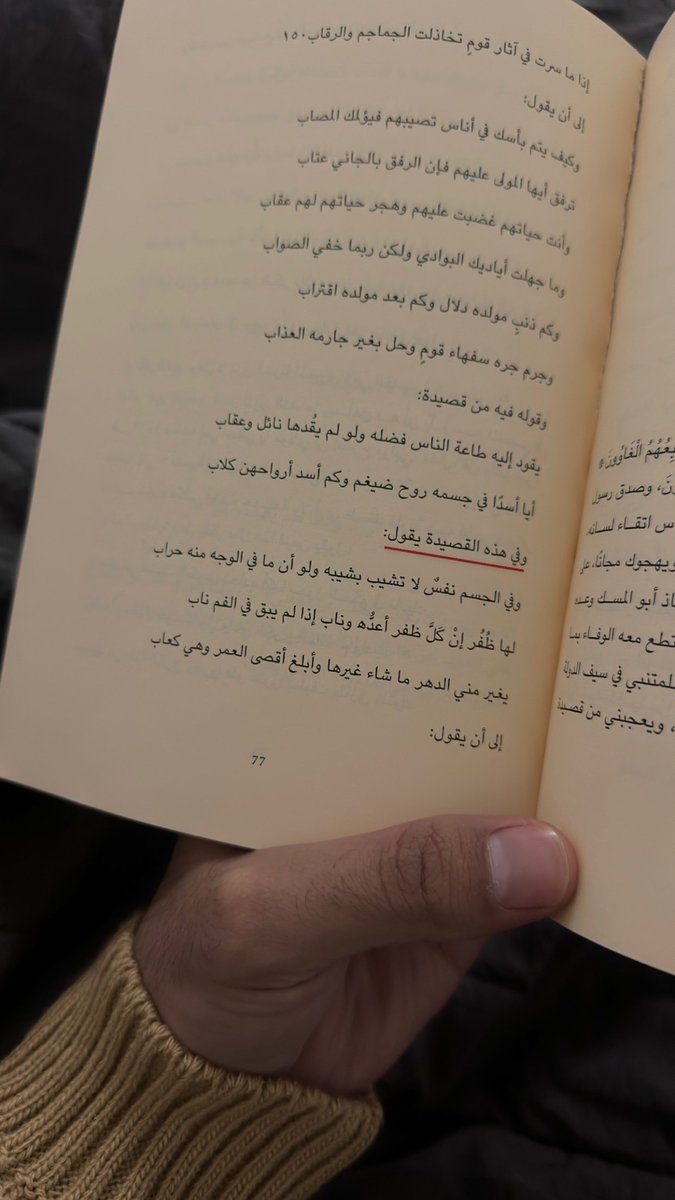 إذا ما سرت في آثار قومٍ تخاذلت الجماجم والرقاب١٥٠
إلى أن يقول:
وكيف يتم بأسك في أناس تصيبهم فيؤلمك المصاب
ترفق أيها المولى عليهم فإن الرفق بالجاني عتاب
وأنت حياتهم غضبت عليهم وهجر حياتهم لهم عقاب
وما جهلت أياديك البوادي ولكن ربما خفي الصواب
وكم ذنبٍ مولده دلال وكم بعد مولده اقتراب
وجرم جره سفهاء قومٍ وحل بغير جارمه العذاب
وقوله فيه من قصيدة:
يقود إليه طاعة الناس فضله ولو لم يقُدها نائل وعقاب
أيا أسدًا في جسمه روح ضيغم وكم أسد أرواحهن كلاب
وفي هذه القصيدة يقول:
وفي الجسم نفسٌ لا تشيب بشيبه ولو أن ما في الوجه منه حراب
لها ظُفُر إنْ كَلَّ ظفر أعدُّه وناب إذا لم يبق في الفم ناب
يغير مني الدهر ما شاء غيرها وأبلغ أقصى العمر وهي كعاب
إلى أن يقول:
77
الْغَاوُونَ
وصدق رسول
اتقاء لسانه
ويهجوك مجانًا، على
أبو المسك وعده
معه الوفاء بما
للمتنبي في سيف الدولة
، ويعجبني من قصيدة